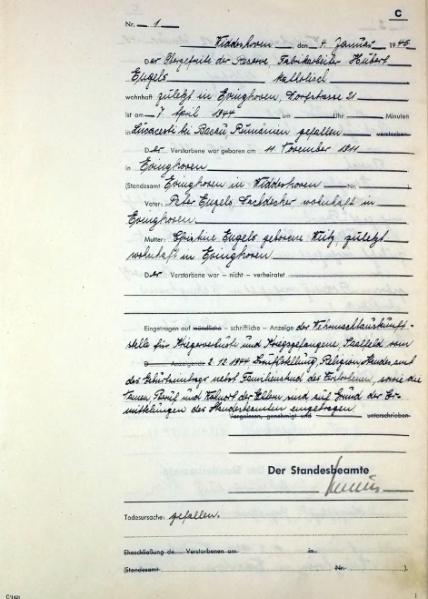 C
Nr. 1
Widdeshoven, den 4. Januar 1945
Der Obergefreite der Reserve, Fabrikarbeiter Hubert
Engels katholisch
wohnhaft zuletzt in Evinghoven, Dorfstasse 21
ist am 7. April 1944 um Uhr Minuten
in bei Bacau, Rumänien gefallen verstorben.
Der Verstorbene war geboren am 11. November 1911
in Evinghoven
(Standesamt Evinghoven in Widdeshoven Nr. )
Vater: Peter Engels, Dachdecker wohnhaft in
Evinghoven
Mutter: Christine Engels geborene zuletzt
wohnhaft in Evinghoven
Der Verstorbene war – nicht – verheiratet
Eingetragen auf mündliche – schriftliche – Anzeige der Wehrmachtauskunft-
stelle für Kriegerverluste und Kriegsgefangene, Saalfeld vom
D Anzeigende 2.12.1944. Berufsstellung, Religion, Standesamt
des Geburtseintrags nebst Familienstand des Verstorbenen, sowie die
Namen, Beruf und Wohnort der Eltern sind auf Grund der Er-
mittlungen des Standesbeamten eingetragen
Vorgelesen, genehmigt und unterschrieben
Der Standesbeamte
Todesursache: gefallen.
Eheschließung de Verstorbenen am in
(Standesamt Nr. ).